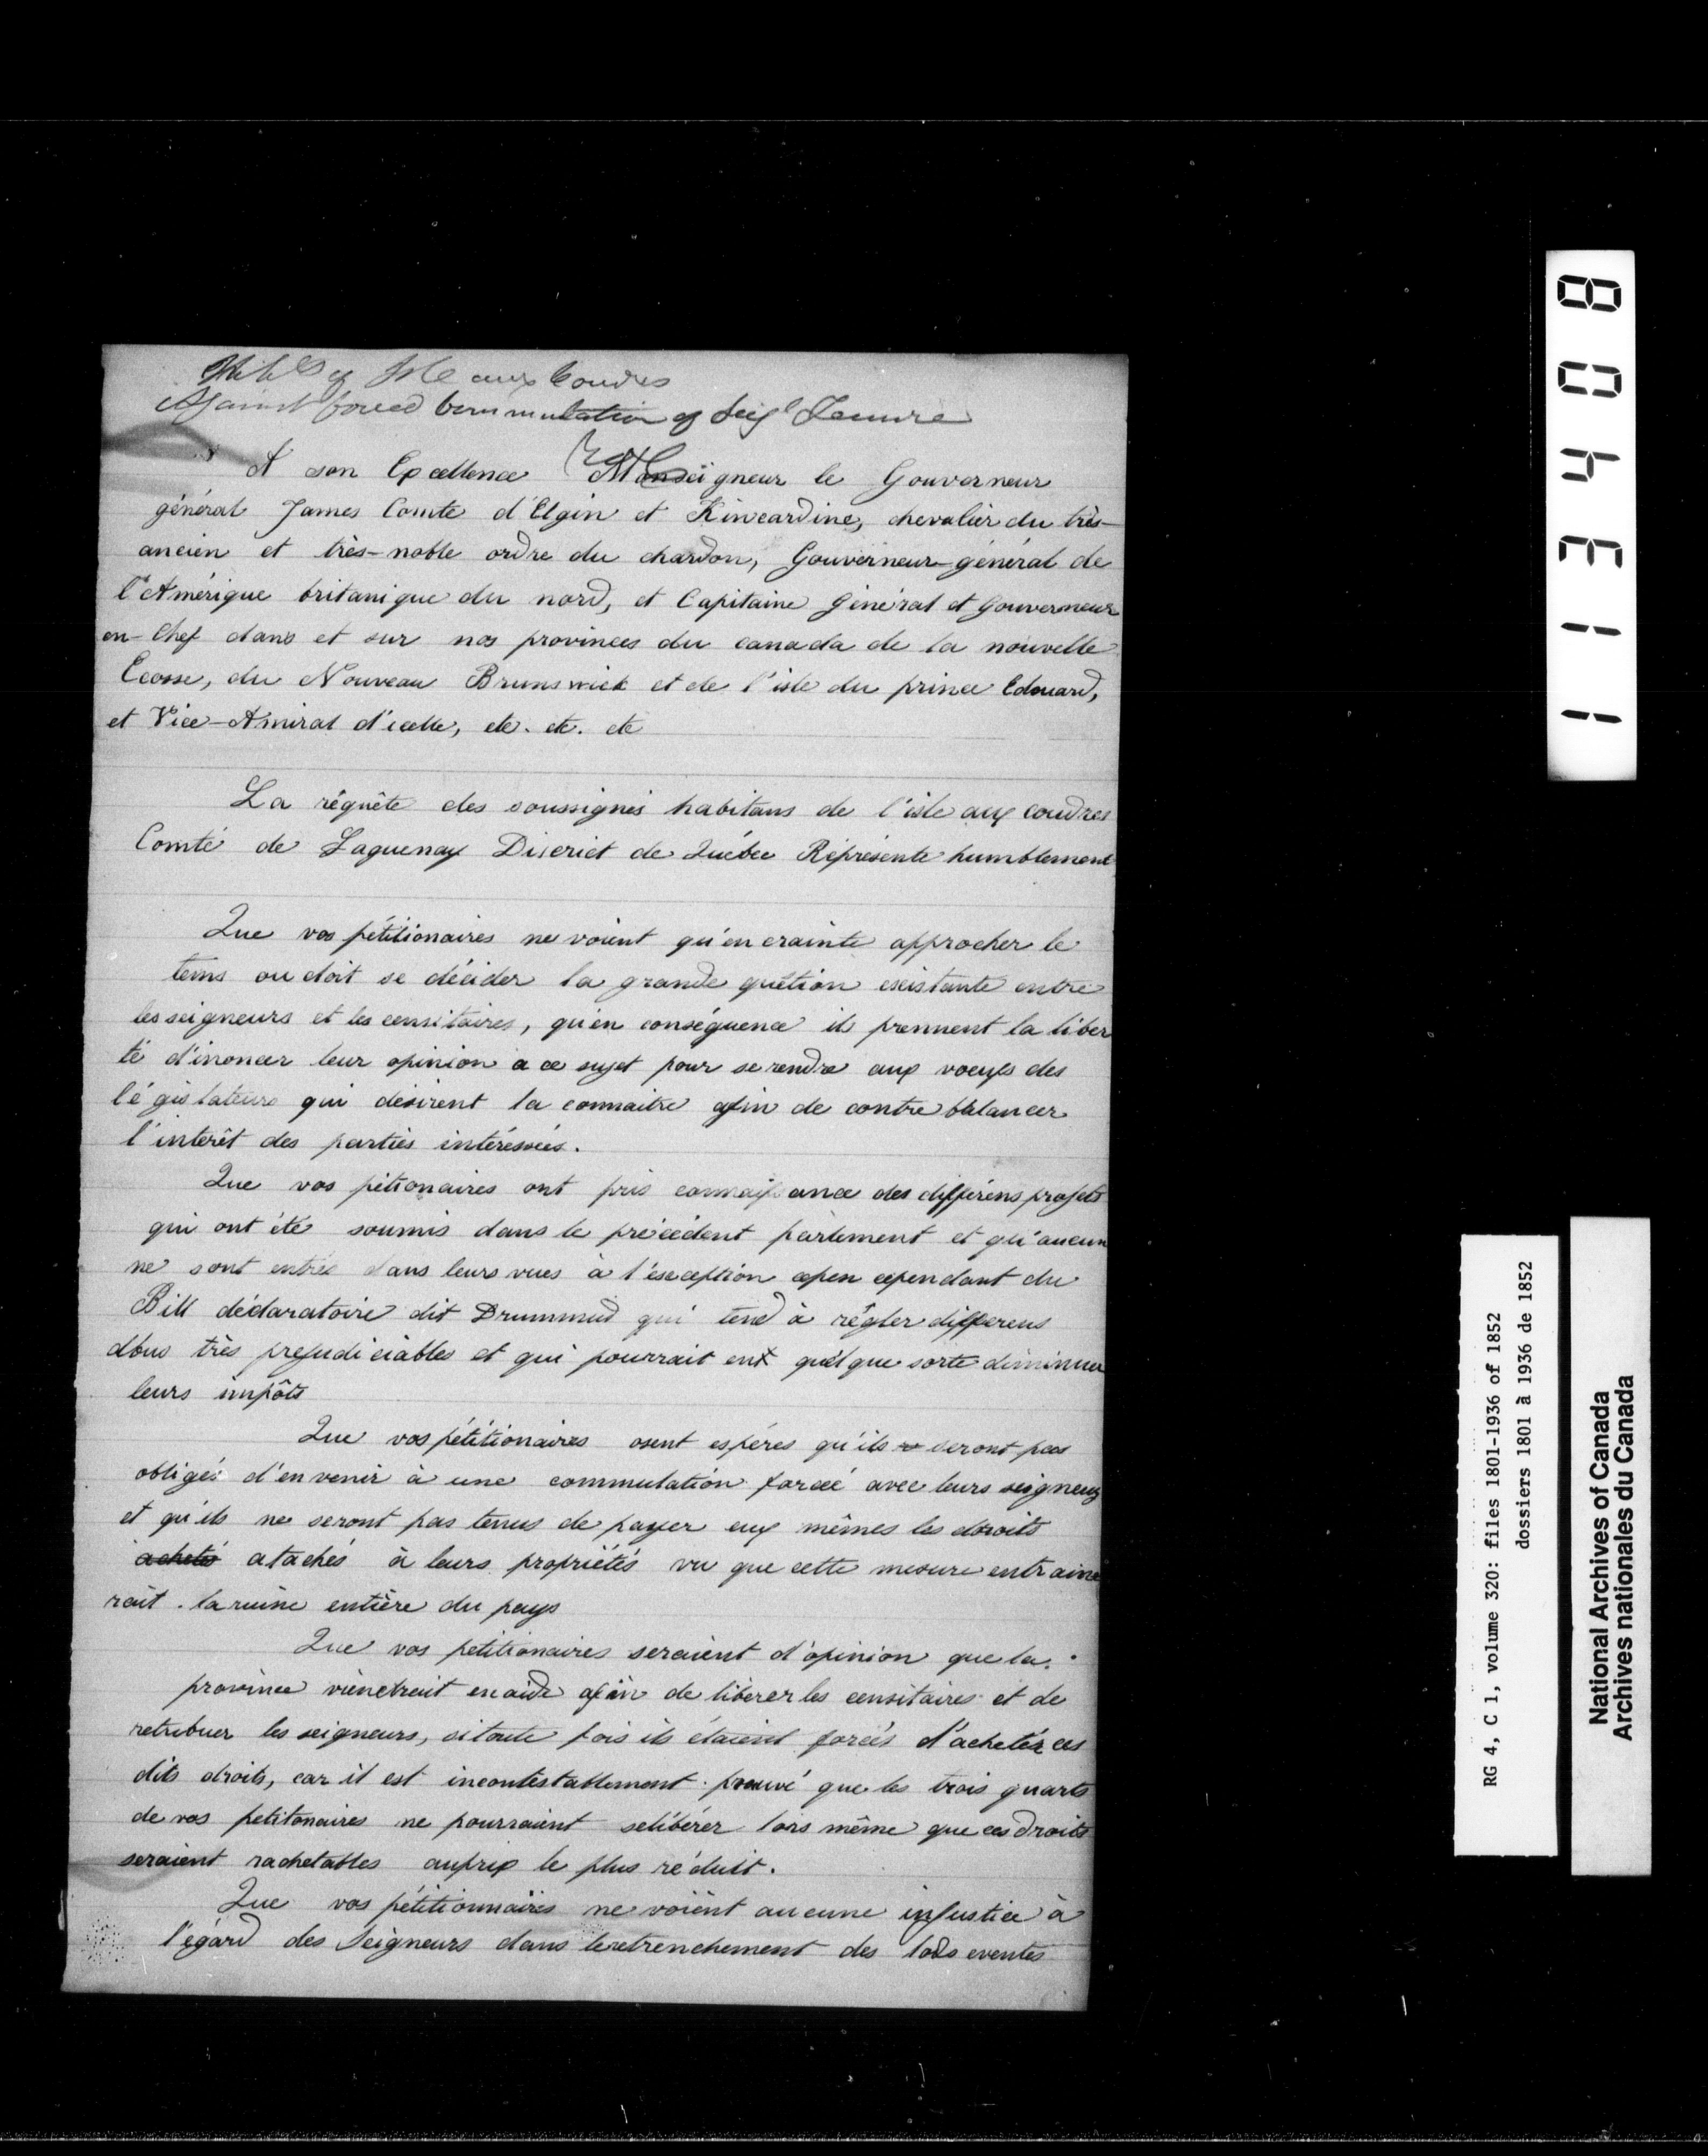 Inhbts of Isle aux Coudres
Against forced Commutation of Seigl Tenure
A son Excellence Monseigneur le Gouverneur
général James Comte d'Elgin et Kincardine, chevalier du très-
ancien et très-noble ordre du chardon, Gouverneur-général de
l'Amérique britanique du nord, et Capitaine Général et Gouverneur
en-Chef dans et sur nos provinces du canada de la nouvelle
Ecosse, du Nouveau Brunswick et de l'isle du prince Edouard,
et Vice-Amiral d'icelle, etc. etc. etc
La réquête des soussignés habitans de l'isle aux coudres
Comté de Saguenay Disrict de Québec Réprésente humblement
Que vos pétitionaires ne voient qu'en crainte approcher le
tems ou doit se décider la grande quétion existante entre
les seigneurs et les censitaires, qu'en conséquence ils prennent la liber
té d'énoncer leur opinion a ce sujet pour se rendre aux voeux des
législateurs qui désirent la connaitre afin de contre balancer
l'interêt des parties intéréssées.
Que vos pétionaires ont pris connaissance des différens projets
qui ont été soumis dans le précédent parlement et qu'aucun
ne sont entrés dans leurs vues à l'éxception cependant du
Bill déclaratoire dit Drummnd qui tend à régler differens
abus très prejudiciables et qui pourrait en quelque sorte diminuer
leurs impôts
Que vos pétitionaires osent espérés qu'ils ne seront pas
obligés d'en venir à une commutation forcée avec leurs seigneurs
et qu'ils ne seront pas tenus de payer eux mêmes les droits
acheté atachés à leurs propriétés vu que cette mesure entraine
rait la ruine entière du pays
Que vos petitionaires seraient d'opinion que la
province viendrait en aide afin de libérer les censitaires et de
retribuer les seigneurs, si toute fois ils étaient forcés d'acheter ces
dits droits, car il est incontestablement prouvé que les trois quarts
de vos petitonaires ne pourraient se libérer lors même que ces droits
seraient rachetables au prix le plus réduit.
Que vos pétitionnaires ne voient aucune injustice à
l'égard des Seigneurs dans le retrenchement des lods e ventes
113408
RG 4, C 1, volume 320: files 1801-1936 of 1852
dossiers 1801 à 1936 de 1852
National Archives of Canada
Archives nationales du Canada